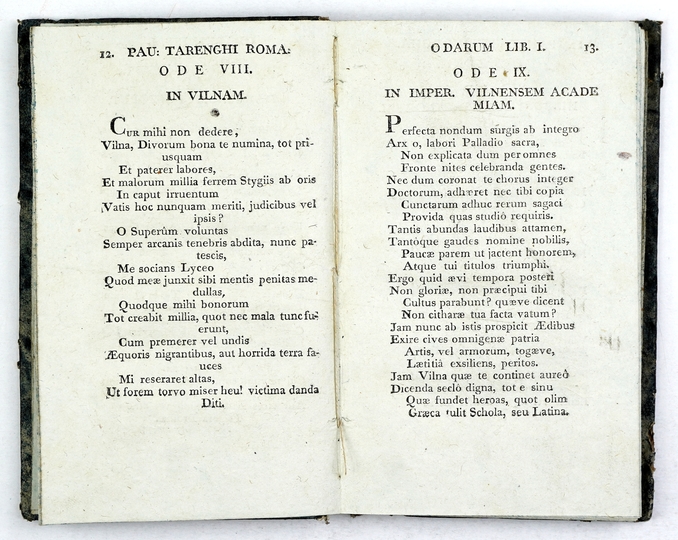 12. PAU: TARENGHI ROMA:
ODE VIII.
IN VILNAM.
CUR mihi non dedere,
Vilna, Divorum bona te numina, tot pri-
usquam
Et paterer labores,
Et malorum millia ferrem Stygiis ab oris
In caput irruentum
Vatis hoc nunquam meriti, judicibus vel
ipsis?
O Superûm voluntas
Semper arcanis tenebris abdita, nunc pa-
tescis,
Me socians Lyceo
Quod meæ junxit sibi mentis penitas me-
dullas,
Quodque mihi bonorum
Tot creabit millia, quot nec mala tunc fus
erunt,
Cum premerer vel undis
Æquoris nigrantibus, aut horrida terra fa-
uces
Mi reseraret altas,
Ut forem torvo miser heu! victima danda
Diti.
ODARUM LIB. I. 13.
ODE IX.
IN IMPER. VILNENSEM ACADE
MIAM.
Perfecta nondum surgis ab integro
Arx o, labori Palladio sacra,
Non explicata dum per omnes
Fronte nites celebranda gentes.
Nec dum coronat te chorus integer
Doctorum, adhæret nec tibi copia
Cunctarum adhuc rerum sagaci
Provida quas studiô requiris.
Tantis abundas laudibus attamen,
Tantôque gaudes nomine nobilis,
Paucæ parem ut jactent honorem,
Atque tui titulos triumphi.
Ergo quid ævi tempora posteri
Non gloriæ, non præcipui tibi
Cultus parabunt? quæve dicent
Non citharæ tua facta vatum?
Jam nunc ab istis prospicit Ædibus
Exire cives omnigenæ patria
Artis, vel armorum, togæve,
Lætitiâ exsiliens, peritos.
Jam Vilna quæ te continet aureô
Dicenda seclô digna, tot e sinu
Quæ fundet heroas, quot olim
Græca tulit Schola, seu Latina.